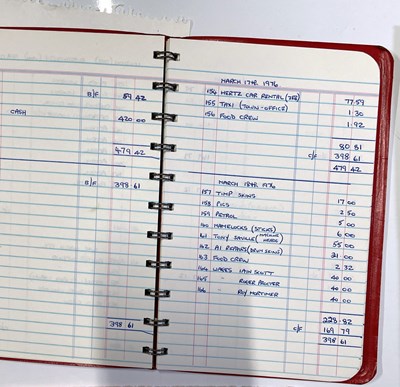 B/F 59 42
CASH 420 00
479 42
B/F 398 61
398 61
MARCH 17th 1976
154 HERTZ CAR RENTAL 77.59
155 TAXI (TOWN-OFFICE) 1.30
156 FOOD CREW 1.92
80 81
C/F 398 61
479 42
MARCH 18th 1976
157 SKINS 17 00
158 PICS 2 50
159 PETROL 5 00
160 (STICKS) 6 00
161 TONY SAVILLE (MACHINE HEADS) 55 00
162 A1 REPAIRS (DRUM SKINS) 21 00
163 FOOD CREW 2 32
164 WAGES IAIN SCOTT 40 00
165 ROGER 40 00
166 ROY MORTIMER 40 00
228.82
C/F 169 79
398 61